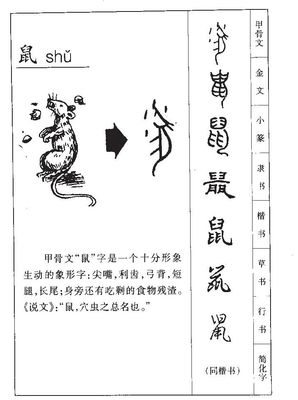 鼠 shǔ
甲骨文“鼠”字是一个十分形象
生动的象形字；尖嘴，利齿，弓背，短
腿，长尾；身旁还有吃剩的食物残渣。
《说文》：“鼠，穴虫之总名也。”
鼠
鼠
鼠
鼠
鼠
鼠
鼠
（同楷书）
甲骨文
金文
小篆
隶书
楷书
草书
行书
简化字